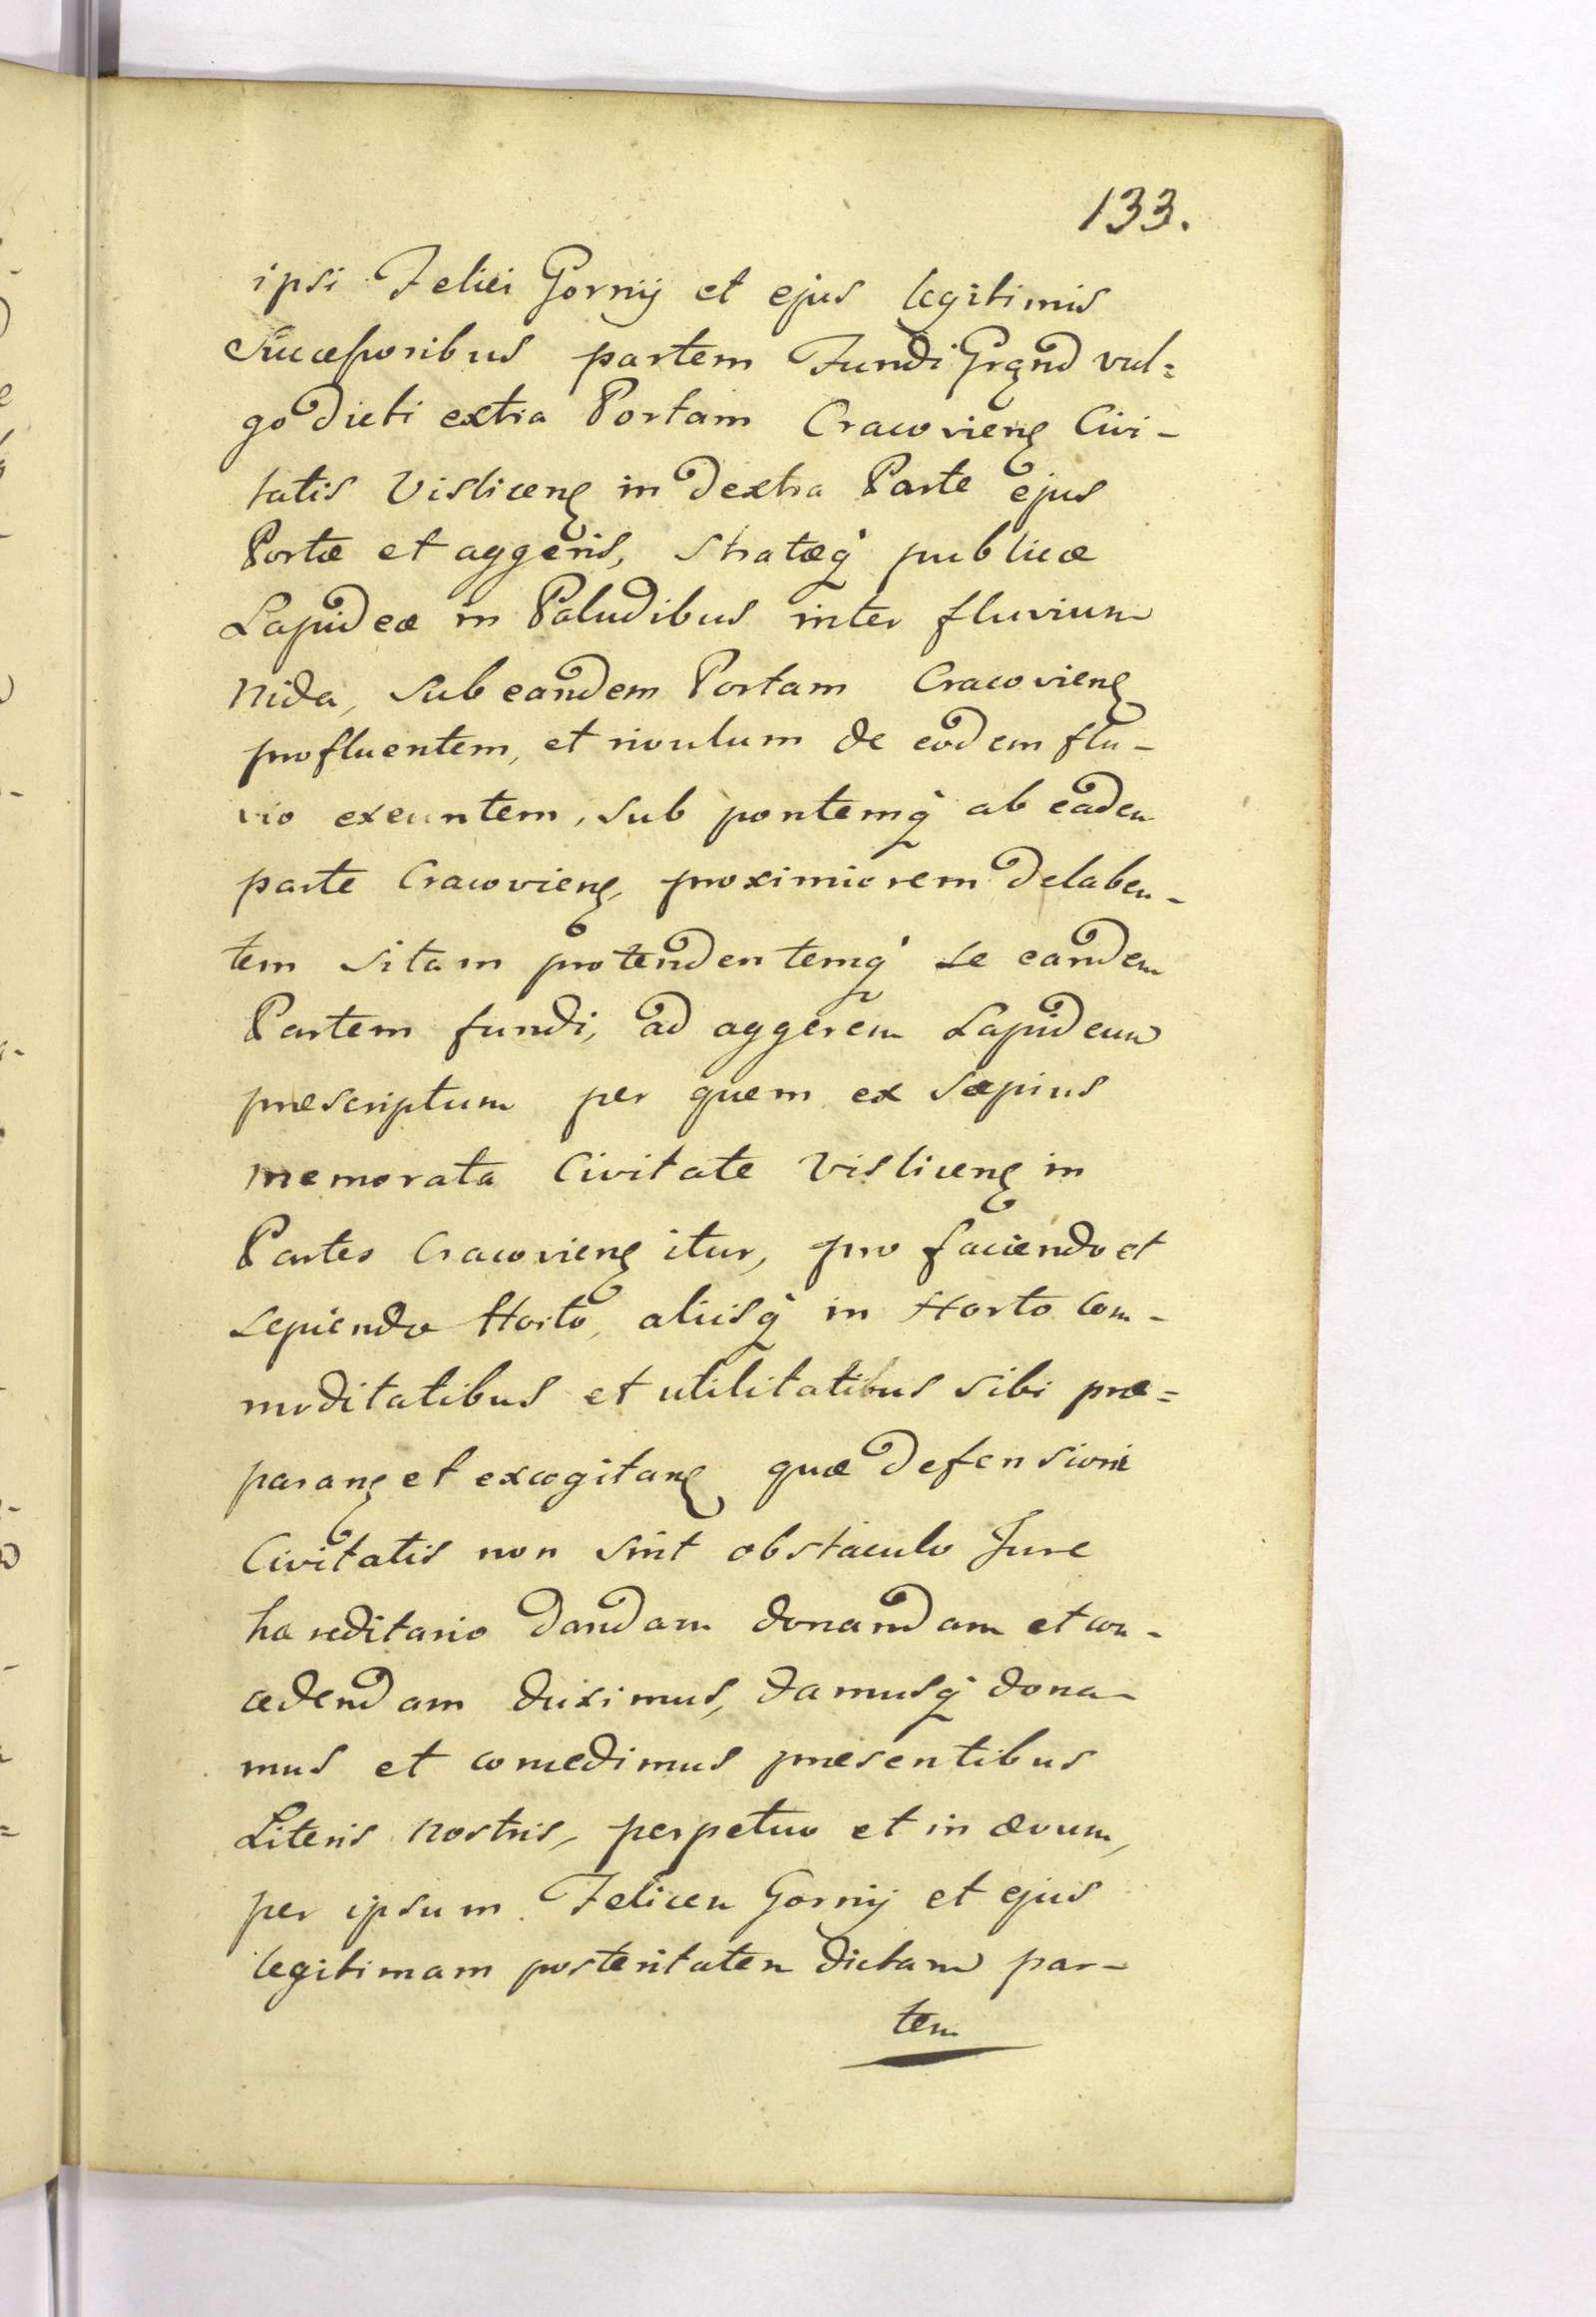 133.
ipsi Felici Gornij et ejus legitimis
Successoribus partem Fundi Grąnd vul=
go dicti extra Portam Cracovienȩ Civi-
tatis Vislicenȩ in dextra Parte ejus
Portæ et aggeris, stratæq̓ publicæ
Lapideæ in Paludibus inter fluvium
Nida, sub eandem Portam Cracovienȩ
profluentem, et rivulum de eodem flu-
vio exeuntem, sub pontemq̓ ab eadem
parte Cracovienȩ, proximiorem delaben-
tem sitam protendentemq̓ se eandem
Partem fundi, ad aggerem Lapideum
præscriptum per quem ex sæpius
memorata Civitate Vislicenȩ in
Partes Cracovienȩ itur, pro faciendo et
sepiendo Horto, aliisq̓ in Horto com-
moditatibus et utilitatibus sibi præ=
paranȩ et excogitanȩ quæ defensioni
Civitatis non sint obstaculo Jure
hæreditario dandam donandam et con-
cedendam duximus, damusq̓ dona-
mus et concedimus præsentibus
Literis nostris, perpetuo et in ævum,
per ipsum Felicem Gornij et ejus
legitimam posteritatem dictam par-
tem